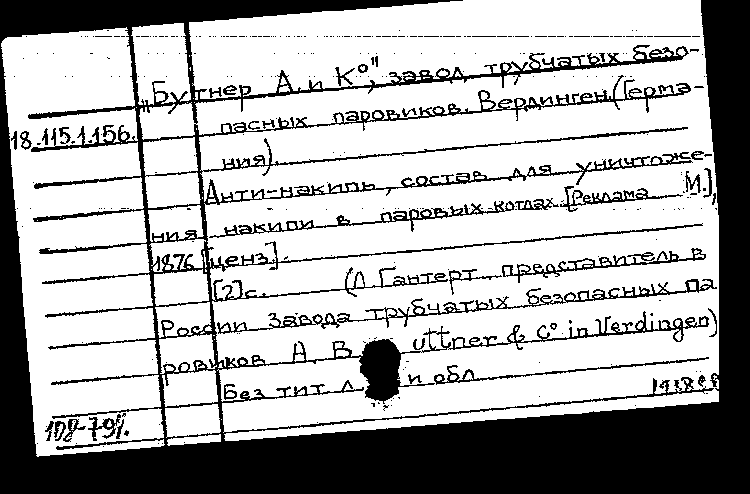 „Бутнер А. и К°", завод трубчатых безо-
18.115.1.156.
пасных паровиков. Вердинген (Герма-
ния).
Анти-накипь, состав для уничтоже-
ния накипи в паровых котлах. [Реклама М.],
1876 [ценз].
[2] с. (Л Гантерт, представитель в
России Завода трубчатых безопасных па
ровиков А. В uttner & C° in Verdingen)
Без тит л и обл
108-791.